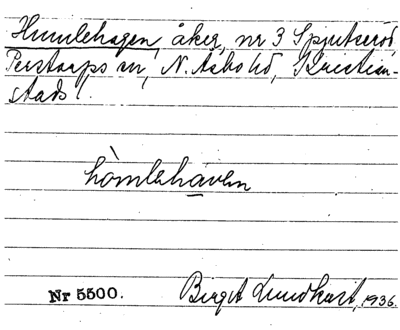 Humlehagen, åker, nr 3 Spjutseröd,
Perstorps sn, N. Åsbo hd, Kristian-
stads l.
hòmlehaven
Nr 5500. Birgit Lundkvist, 1936.